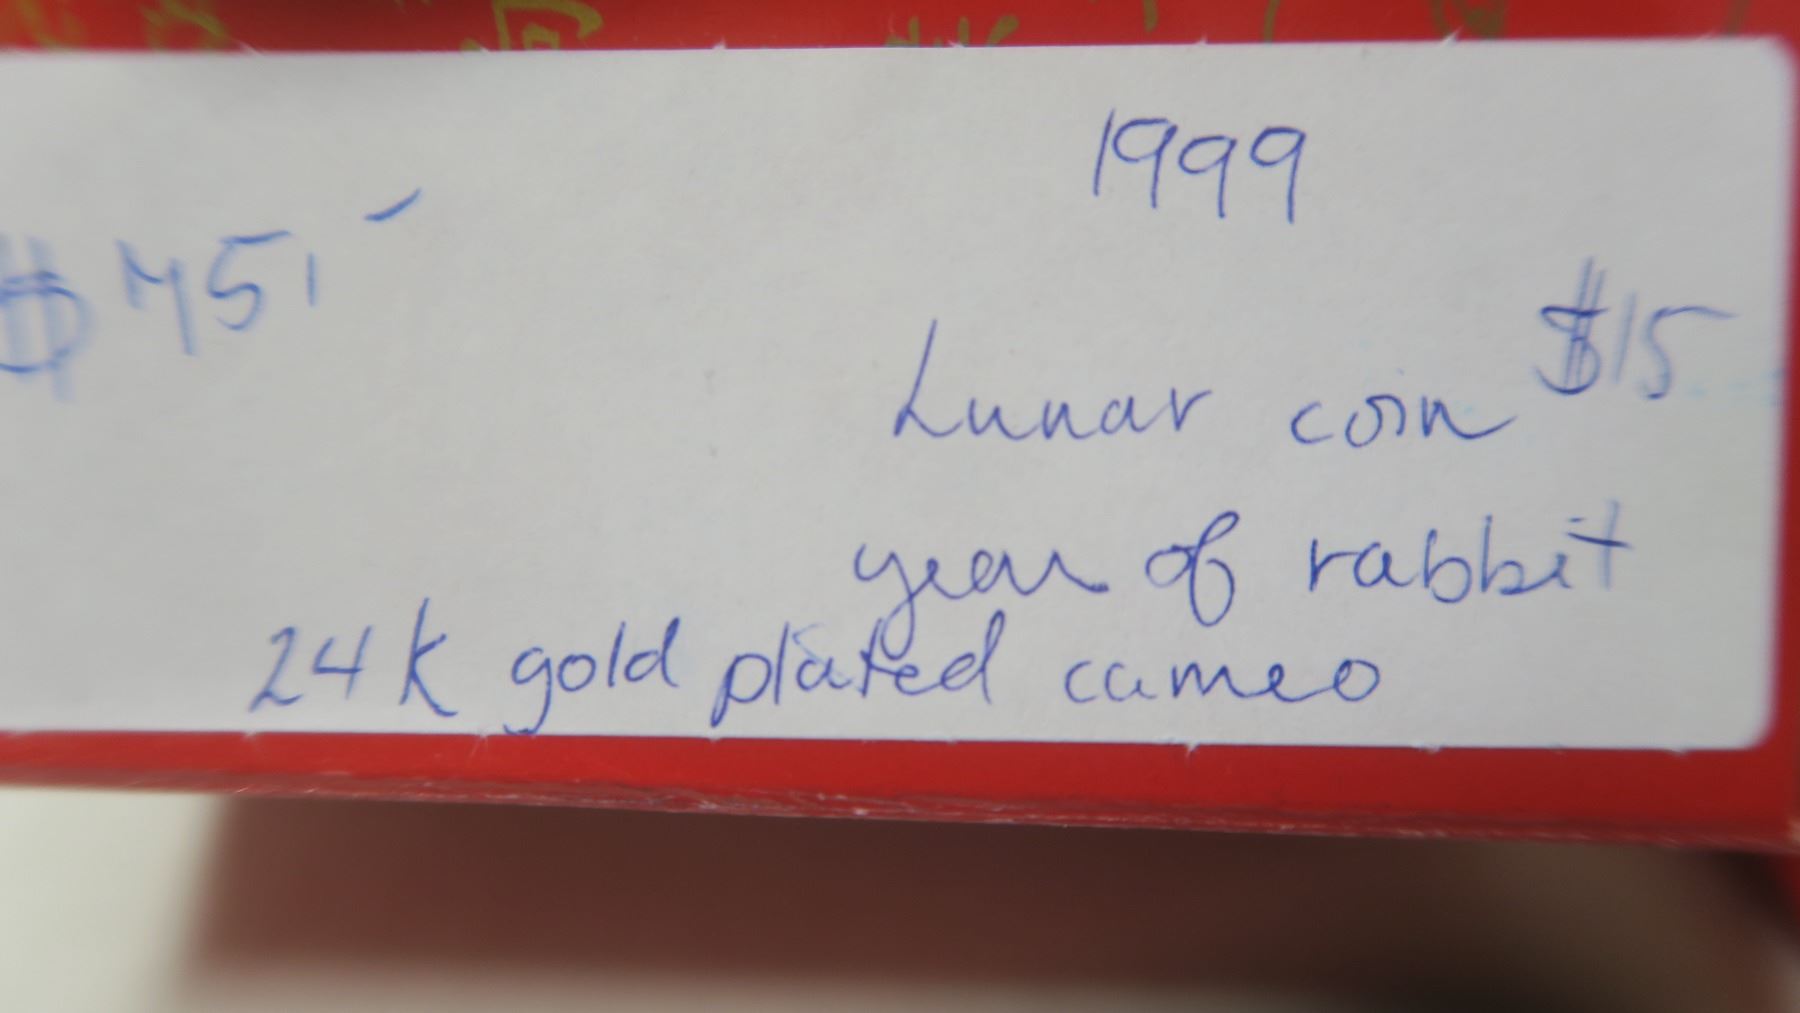 1999
$75,-
Lunar coin $15
year of rabbit
24K gold plated cameo